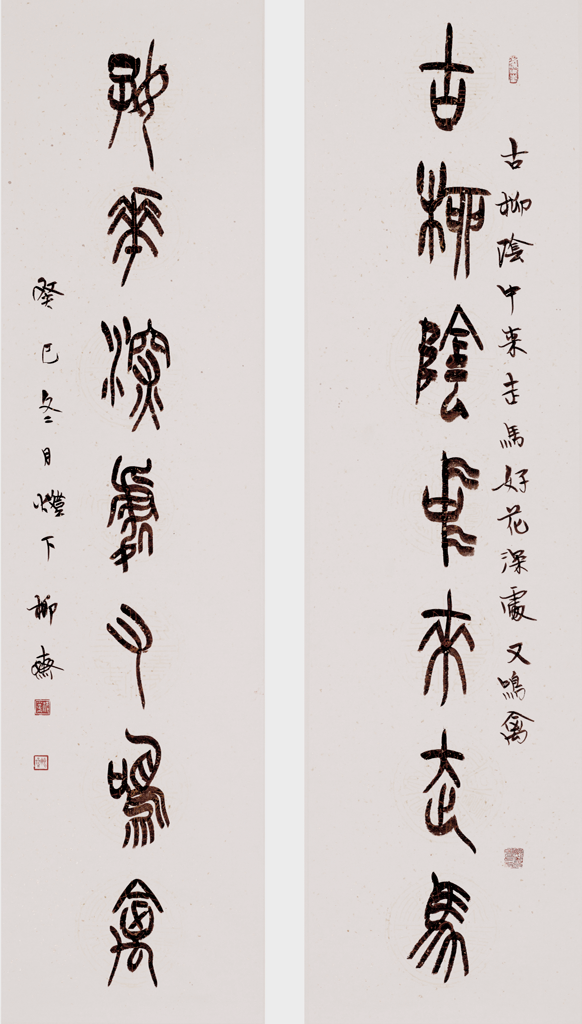 古柳陰中來走馬好花深處又鳴禽
古柳陰中來走馬
好華深處又鳴禽
癸巳冬月燈下柳齋